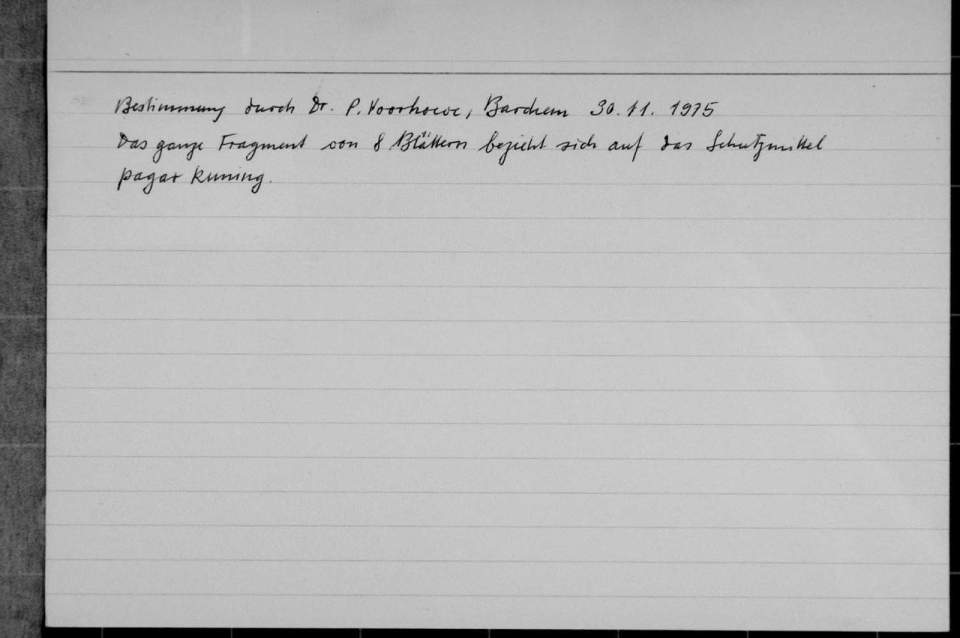 Bestimmung durch Dr. P. Voorhoeve, Barchem 30.11.1975
Das ganze Fragment von 8 Blättern bezieht sich auf das Schutzmittel
pagar kuning.